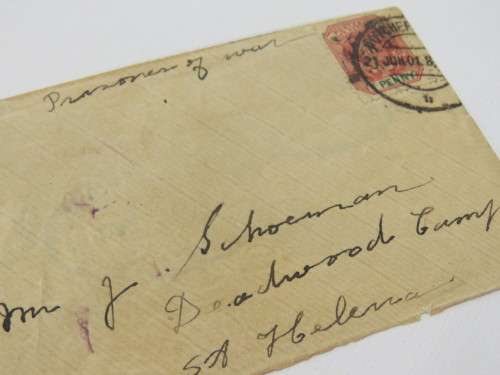 Prisoner of war
21 JUN 01.8
PENNY
Mr J. Schoeman
Deadwood Camp
St Helena